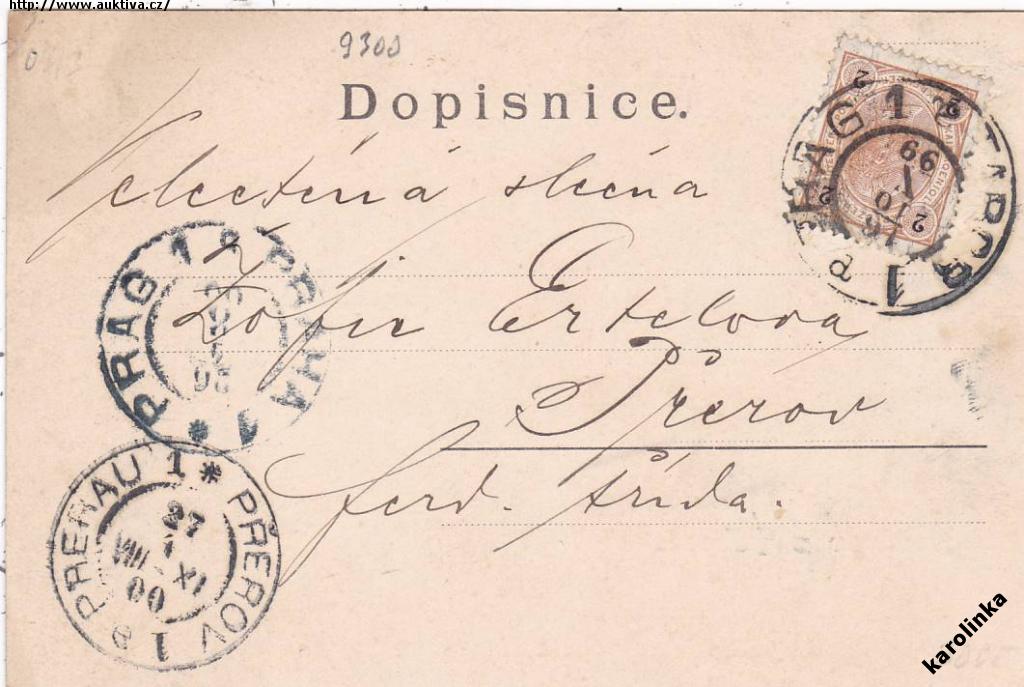 http://www.auktiva.cz/
9300
Dopisnice.
Velectěná slečna
Žofie Ertelova
Přerov
ferd. třída.
PRAG 1 PRAHA 1
PRERAU 1 * PŘEROV 1
27
XI
00
PRAG 1
99
2 2 2 2
karolinka